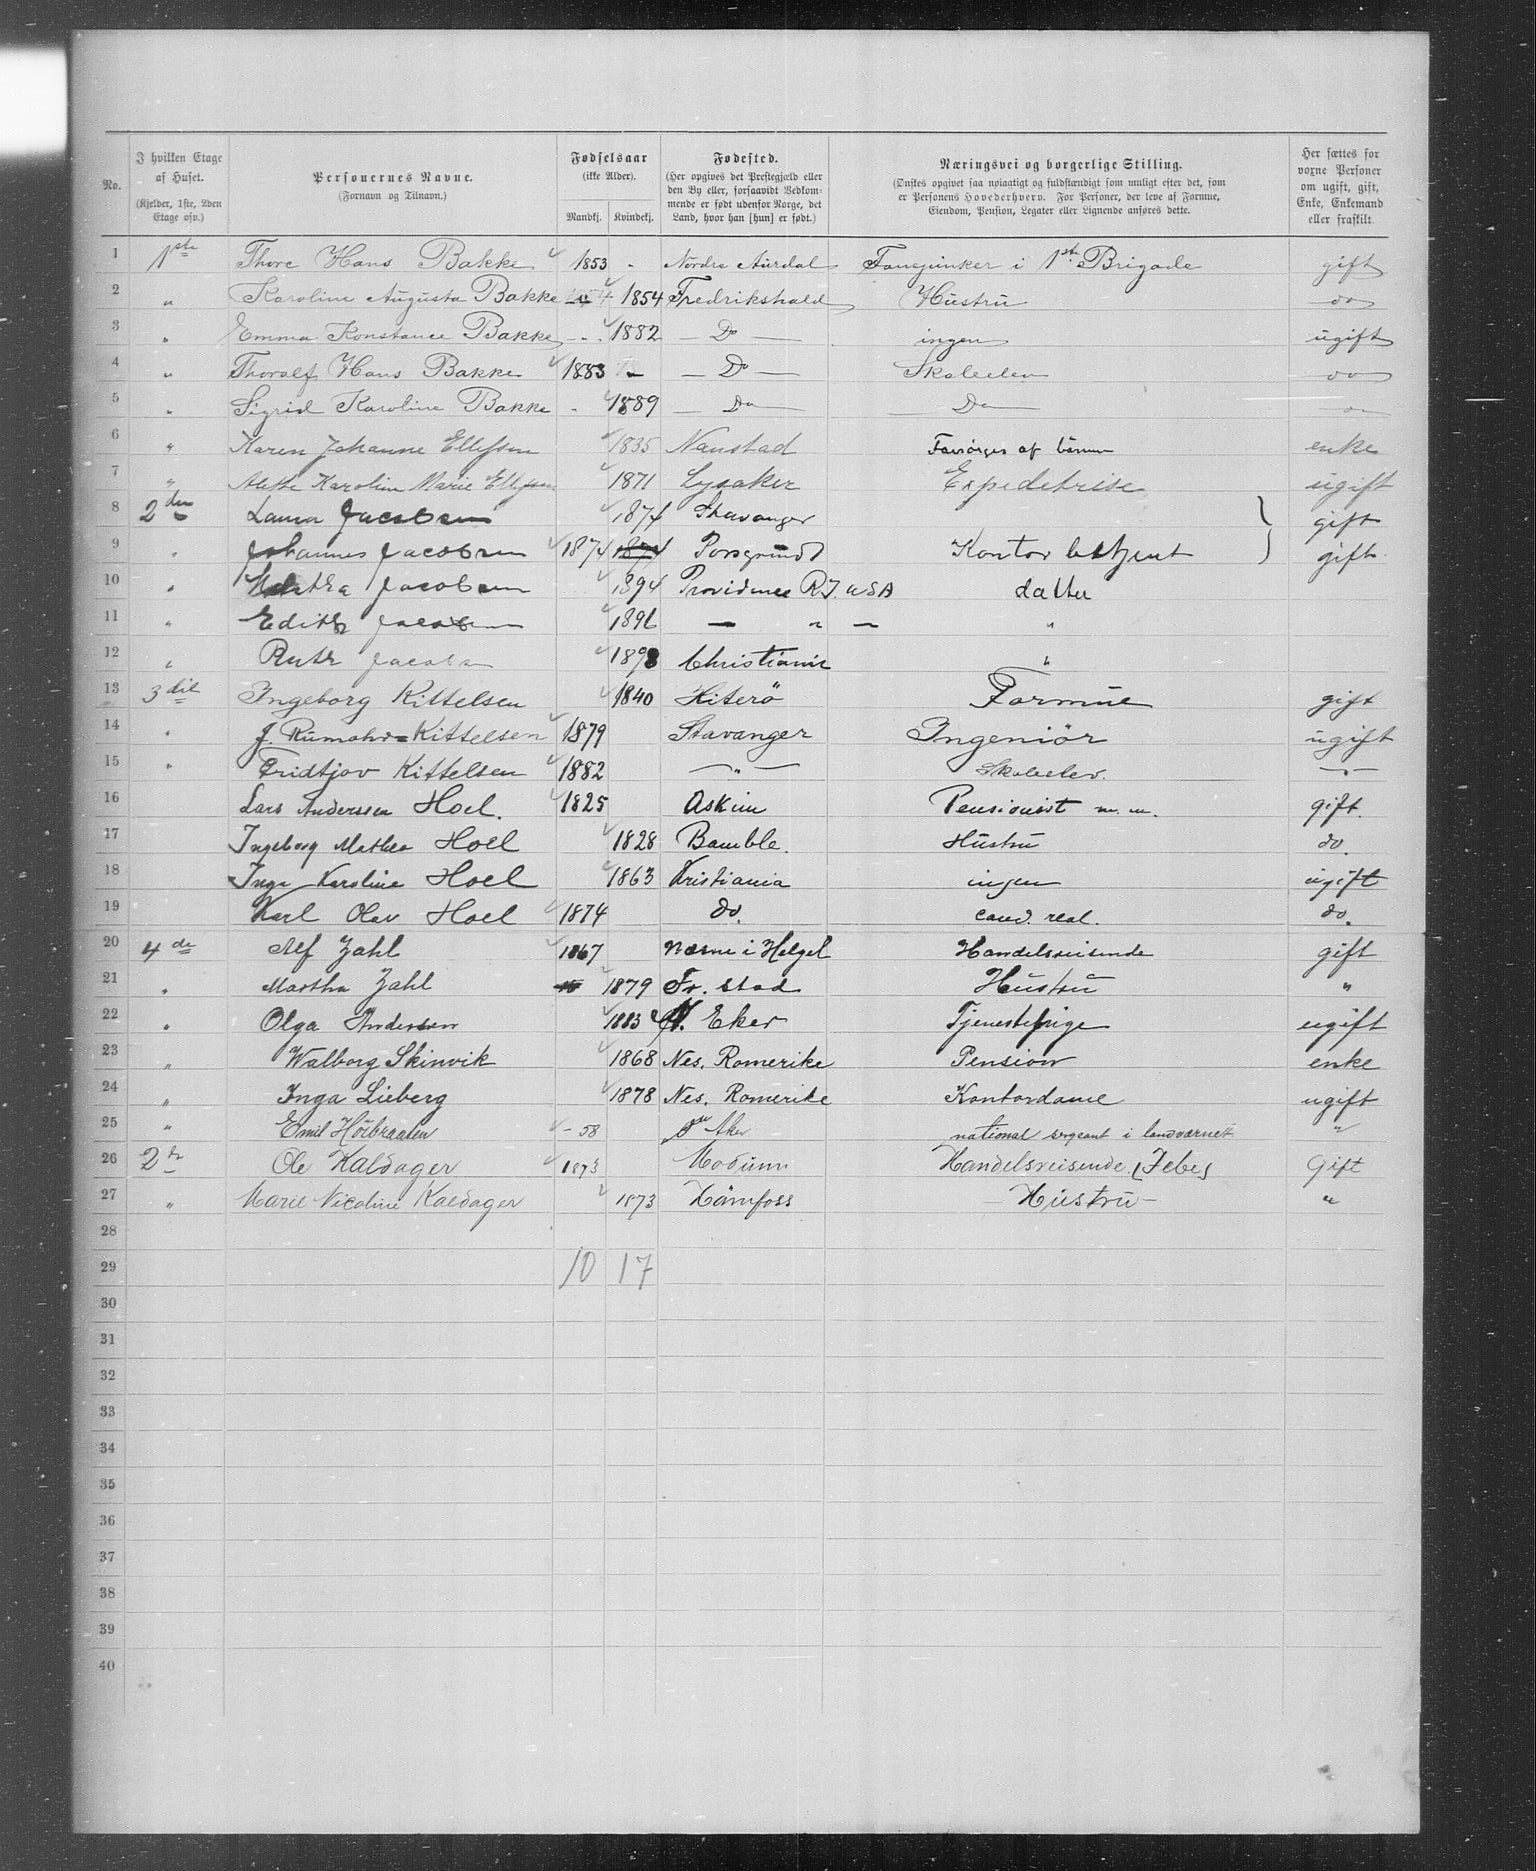 No. | I hvilken Etage af Huset. (Kjelder, 1ste, 2den Etage osv.) | Personernes Navne. (Fornavn og Tilnavn.) | Fødselsaar (ikke Alder). Mandkj. | Kvindekj. | Fødested. (Her opgives det Prestegjæld eller den By eller, forsaavidt Vedkommende er født udenfor Norge, det Land, hvor han [hun] er født.) | Næringsvei og borgerlige Stilling. (Ønskes opgivet saa nøiagtigt og fuldstændigt som muligt efter det, som er Personens Hovederhverv. For Personer, der leve af Formue, Eiendom, Pension, Legater eller Lignende anføres dette.) | Her sættes for voxne Personer om ugift, gift, Enke, Enkemand eller fraskilt.
1 1ste Thore Hans Bakke 1853 - Nordre Aurdal Fanejunker i 1ste Brigade gift
2 " Karoline Augusta Bakke 1854 Fredrikshald Hustru do
3 " Emma Konstance Bakke - 1882 — Do — ingen ugift
4 " Thoralf Hans Bakke 1883 - — Do — Skoleelev do
5 " Sigrid Karoline Bakke - 1889 — Do — — Do —
6 " Karen Johanne Ellefsen 1835 Nanstad Forsørges af børnene enke
7 " Karoline Marie Ellefsen 1871 Lysaker Expeditrise ugift
8 2den Laura Jacobsen 1874 Stavanger gift
9 " Johannes Jacobsen 1874 1874 Porsgrund Kontor betjent gift
10 " Jacobsen 1894 Providence R.I. USA datter
11 " Edith Jacobsen 1896 — " — "
12 " Ruth Jacobsen 1898 Christiania "
13 3die Ingeborg Kittelsen 1840 Hiterö Formue gift
14 " J. Rumohr-Kittelsen 1879 Stavanger Ingeniör ugift
15 " Fridtjov Kittelsen 1882 — " — Skoleelev. — " —
16 Lars Anderssen Hoel. 1825 Askim Pensionist m.m. gift.
17 Ingeborg Mathea Hoel 1828 Bamble. Hustru do.
18 Inga Karoline Hoel 1863 Kristiania ingen ugift
19 Karl Olav Hoel 1874 do. cand. real. do.
20 4de Alf Zahl 1867 Næsne i Helgel Handelsreisende gift
21 " Martha Zahl 1879 Fr. stad Hustru "
22 " Olga Andersen 1883 N. Eker Tjenestepige ugift
23 " Walborg Skinvik 1868 Nes. Romerike Pension enke
24 " Inga Lieberg 1878 Nes. Romerike Kontordame ugift
25 " Emil Höibraaten - 58 Aker national sergeant i landværnet "
26 2den Ole Kaldager 1873 Modum Handelsreisende (Jebe) Gift
27 " Marie Nicoline Kaldager 1873 Hönefoss — Hustru — "
28
29 10 17
30
31
32
33
34
35
36
37
38
39
40